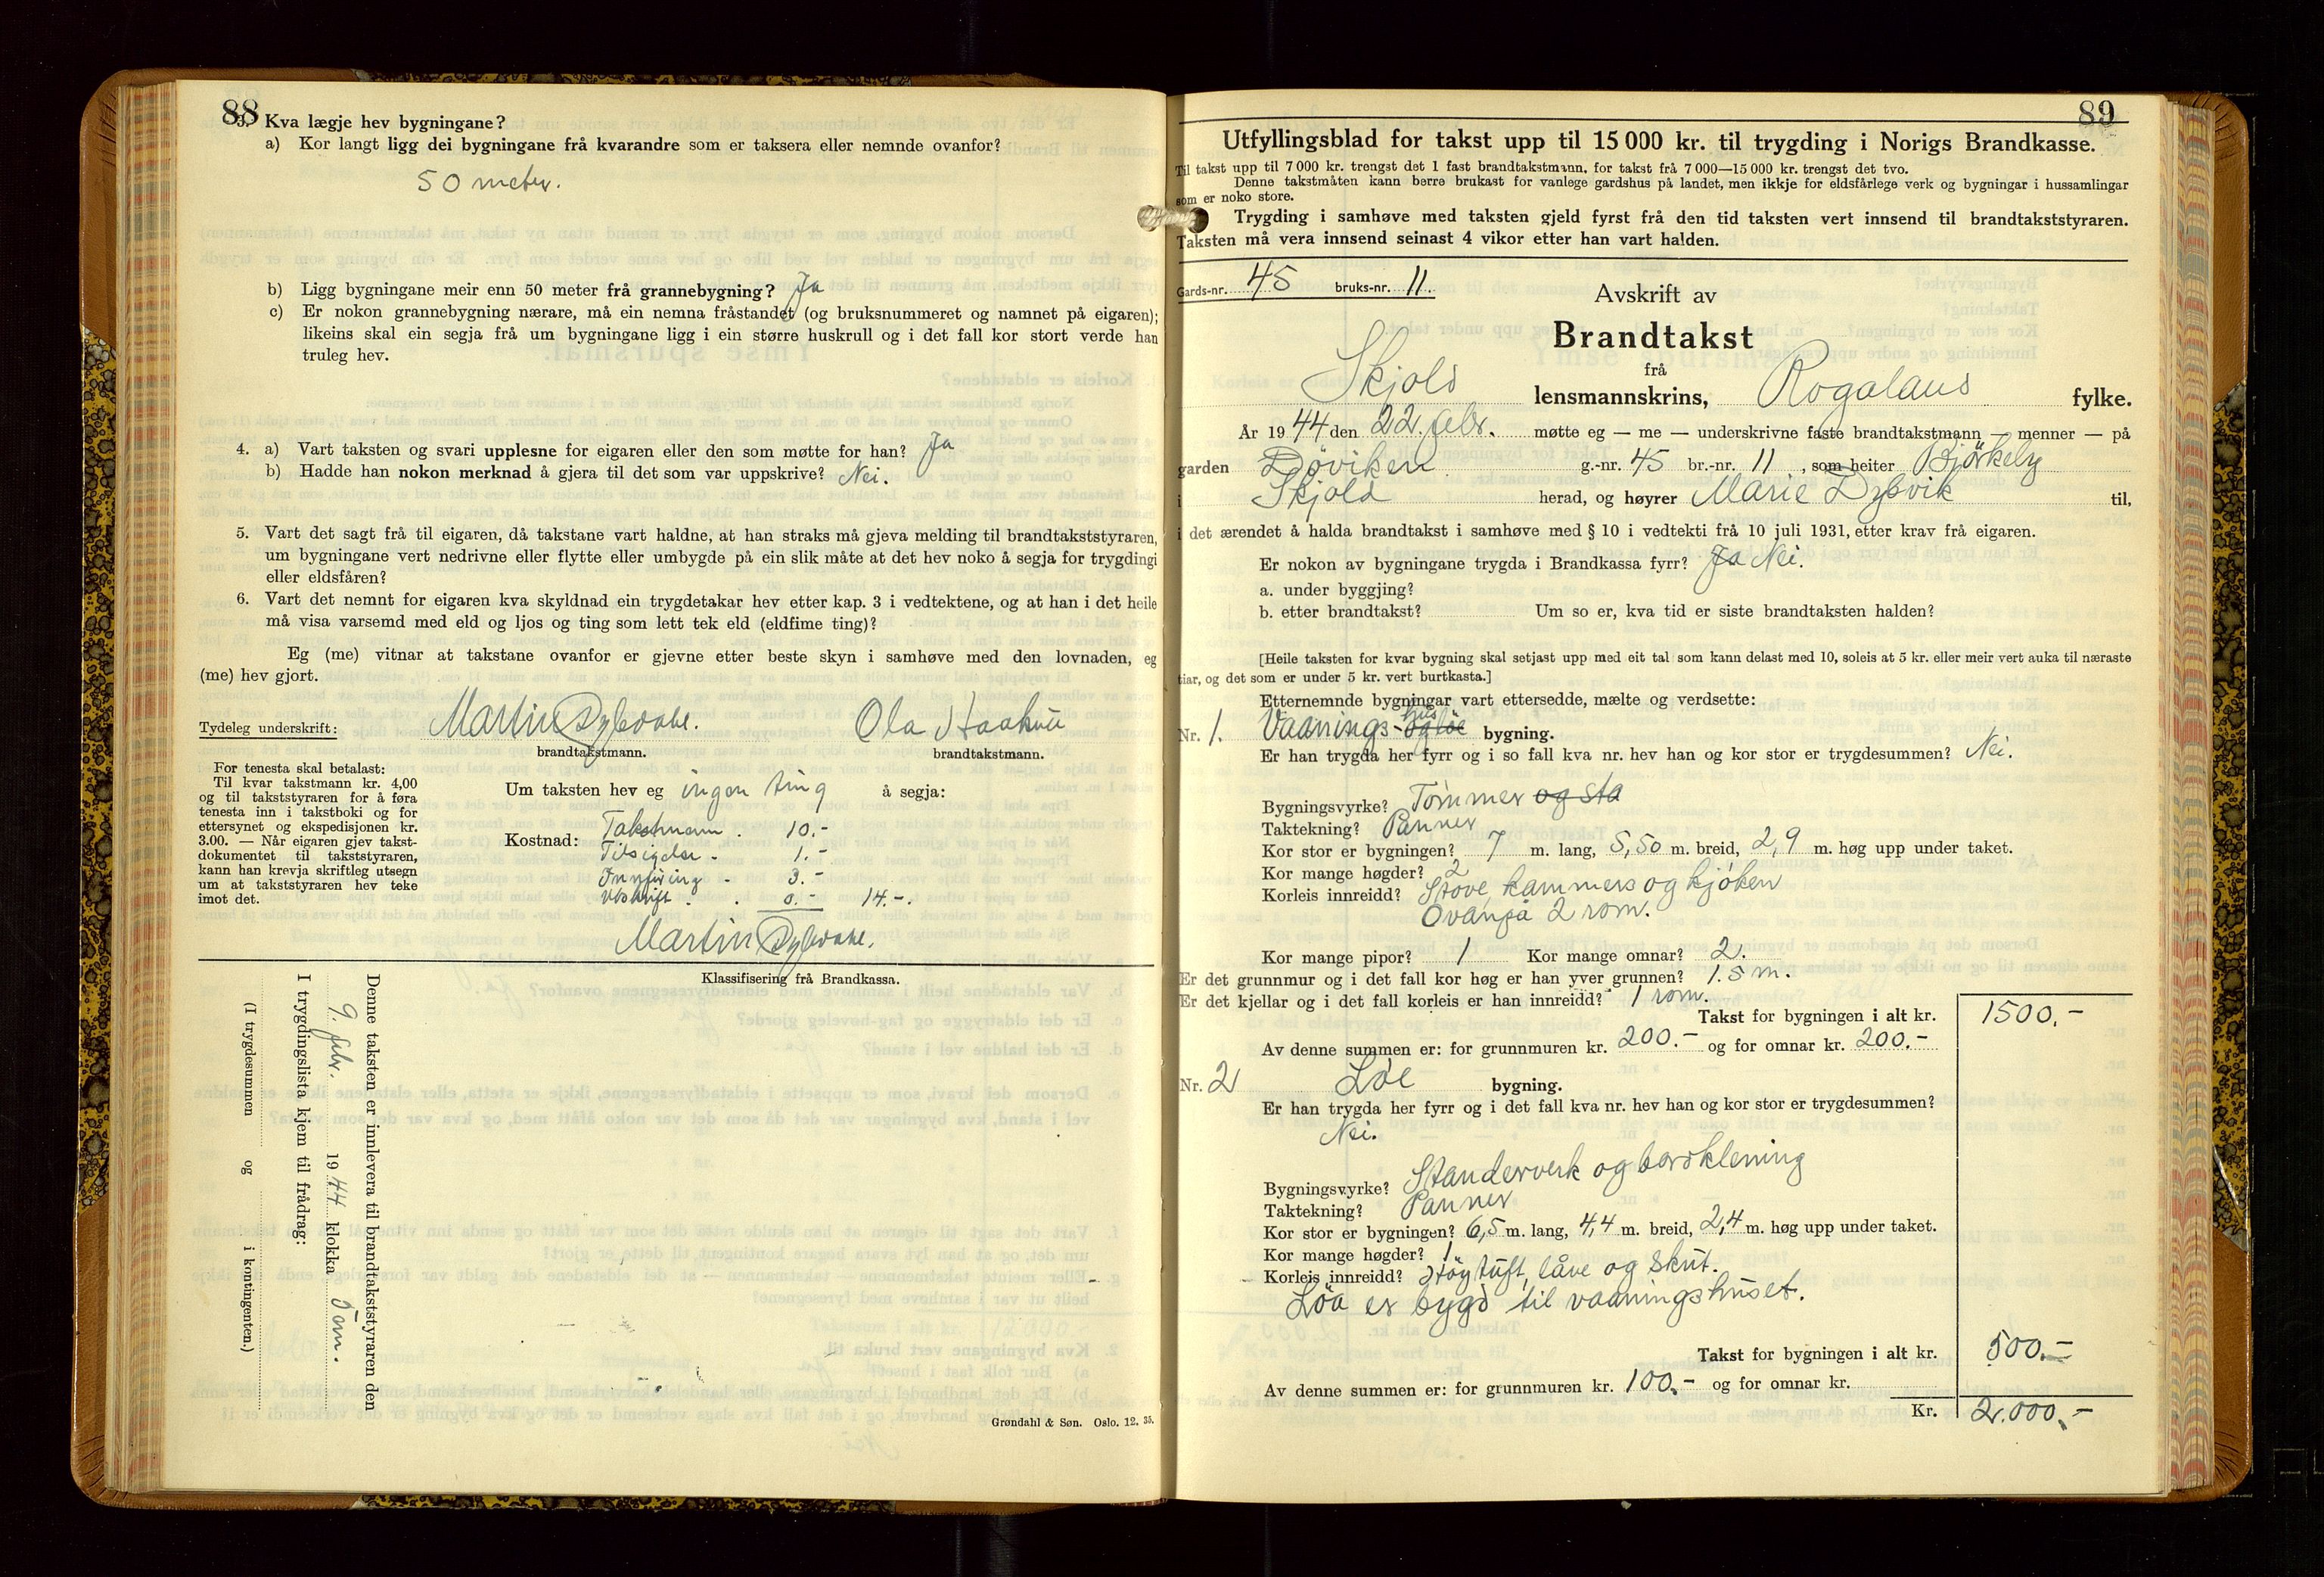 88
3. Kva lægje hev bygningane?
a) Kor langt ligg dei bygningane frå kvarandre som er taksera eller nemnde ovanfor?
50 meter.
b) Ligg bygningane meir enn 50 meter frå grannebygning? Ja
c) Er nokon grannebygning nærare, må ein nemna fråstandet (og bruksnummeret og namnet på eigaren);
likeins skal ein segja frå um bygningane ligg i ein større huskrull og i det fall kor stort verde han
truleg hev.
4. a) Vart taksten og svari upplesne for eigaren eller den som møtte for han? Ja
b) Hadde han nokon merknad å gjera til det som var uppskrive? Nei.
5. Vart det sagt frå til eigaren, då takstane vart haldne, at han straks må gjeva melding til brandtakststyraren,
um bygningane vert nedrivne eller flytte eller umbygde på ein slik måte at det hev noko å segja for trygdingi
eller eldsfåren?
6. Vart det nemnt for eigaren kva skyldnad ein trygdetakar hev etter kap. 3 i vedtektene, og at han i det heile
må visa varsemd med eld og ljos og ting som lett tek eld (eldfime ting)?
Eg (me) vitnar at takstane ovanfor er gjevne etter beste skyn i samhøve med den lovnaden, eg
(me) hev gjort.
Tydeleg underskrift: Martin Dybdahl. Ola
brandtakstmann. brandtakstmann.
For tenesta skal betalast:
Til kvar takstmann kr. 4,00
og til takststyraren for å føra
tenesta inn i takstboki og for
ettersynet og ekspedisjonen kr.
3.00. — Når eigaren gjev takst-
dokumentet til takststyraren,
kann han krevja skriftleg utsegn
um at takststyraren hev teke
imot det.
Um taksten hev eg ingen ting å segja:
Kostnad: Takstmenn . 10.-
Tilsigelse - 1.-
Innføring - 3.-
Utskrift . . 0.- 14.-.
Martin Dybdahl.
Klassifisering frå Brandkassa.
Denne taksten er innlevera til brandtakststyraren den
9. febr. 1944 klokka 5 em.
I trygdingslista kjem til frådrag:
(I trygdesummen og i kontingenten.)
Grøndahl & Søn. Oslo. 12. 35.
89
Utfyllingsblad for takst upp til 15 000 kr. til trygding i Norigs Brandkasse.
Til takst upp til 7 000 kr. trengst det 1 fast brandtakstmann, for takst frå 7 000—15 000 kr. trengst det tvo.
Denne takstmåten kann berre brukast for vanlege gardshus på landet, men ikkje for eldsfårlege verk og bygningar i hussamlingar
som er noko store.
Trygding i samhøve med taksten gjeld fyrst frå den tid taksten vert innsend til brandtakststyraren.
Taksten må vera innsend seinast 4 vikor etter han vart halden.
Gards-nr. 45 bruks-nr. 11.
Avskrift av
Brandtakst
frå
Skjold lensmannskrins, Rogaland fylke.
År 1944 den 22. febr. møtte eg — me — underskrivne faste brandtakstmann — menner — på
garden Døviken g.-nr. 45 br.-nr. 11, som heiter Bjørkely
i Skjold herad, og høyrer Marie Dybvik til,
i det ærendet å halda brandtakst i samhøve med § 10 i vedtekti frå 10 juli 1931, etter krav frå eigaren.
Er nokon av bygningane trygda i Brandkassa fyrr? Ja Nei.
a. under byggjing?
b. etter brandtakst? Um so er, kva tid er siste brandtaksten halden?
[Heile taksten for kvar bygning skal setjast upp med eit tal som kann delast med 10, soleis at 5 kr. eller meir vert auka til næraste
tiar, og det som er under 5 kr. vert burtkasta.]
Etternemnde bygningar vart ettersedde, mælte og verdsette:
Nr. 1. Vaanings- og løe hus bygning.
Er han trygda her fyrr og i so fall kva nr. hev han og kor stor er trygdesummen? Nei.
Bygningsvyrke? Tømmer og sta
Taktekning? Panner
Kor stor er bygningen? 7 m. lang, 5,50 m. breid, 2,9 m. høg upp under taket.
Kor mange høgder? 2
Korleis innreidd? Stove, kammers og kjøken
Ovanpå 2 rom.
Kor mange pipor? 1 Kor mange omnar? 2.
Er det grunnmur og i det fall kor høg er han yver grunnen? 1.5 m.
Er det kjellar og i det fall korleis er han innreidd? 1 rom.
Takst for bygningen i alt kr. 1500.-
Av denne summen er: for grunnmuren kr. 200.- og for omnar kr. 200.-
Nr. 2 Løe bygning.
Er han trygda her fyrr og i det fall kva nr. hev han og kor stor er trygdesummen?
Nei.
Bygningsvyrke? Standerverk og bordklening
Taktekning? Panner
Kor stor er bygningen? 6,5 m. lang, 4,4 m. breid, 2,4 m. høg upp under taket.
Kor mange høgder? 1
Korleis innreidd? Høytuft, låve og skut.
Løa er bygd til vaaningshuset.
Takst for bygningen i alt kr. 500.-
Av denne summen er: for grunnmuren kr. 100.- og for omnar kr.
Kr. 2.000.-